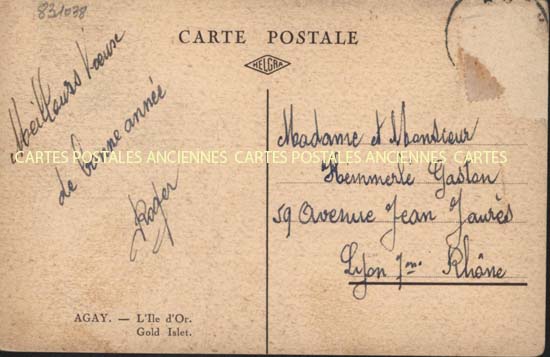 831038
CARTE POSTALE
HELGRA
Meilleurs Vœux
de bonne année
Roger
Madame et Monsieur
Hemmerle Gaston
59 Avenue Jean Jaurès
Lyon 7me Rhône
CARTES POSTALES ANCIENNES CARTES POSTALES ANCIENNES CARTES
AGAY. — L'Ile d'Or.
Gold Islet.